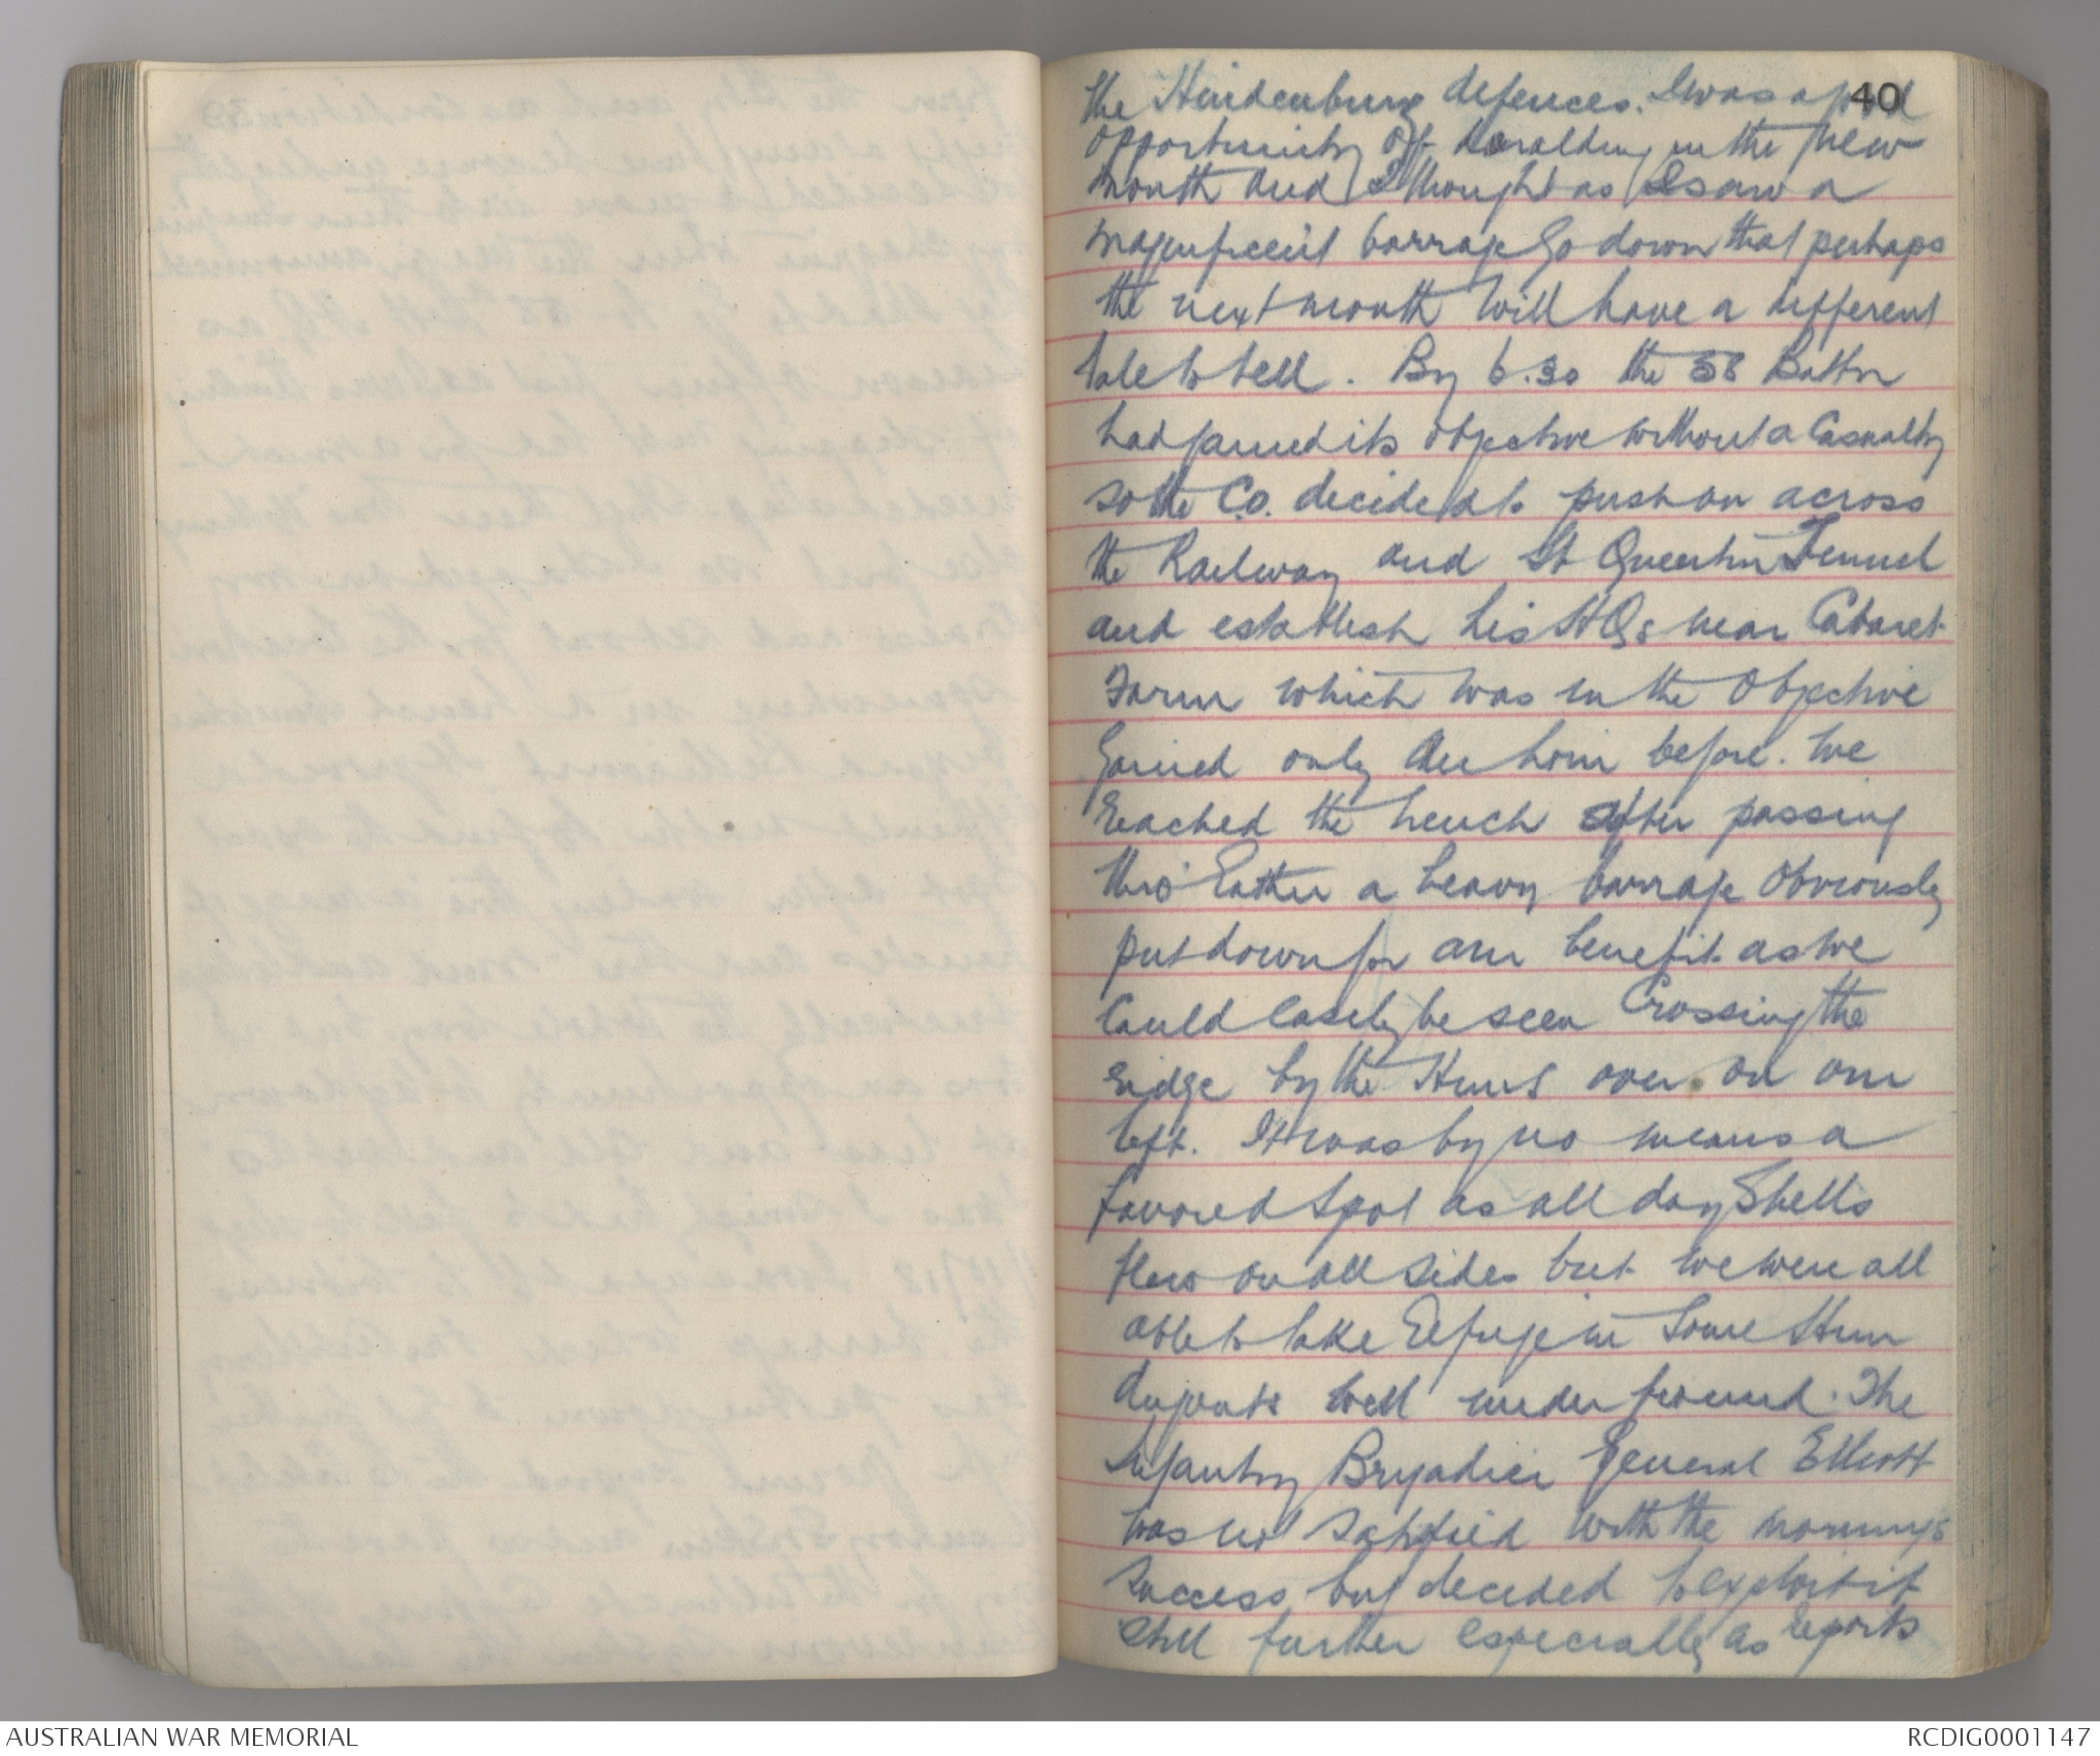 40
the Hindenburg defences. It was a good
opportunity of heralding in the new
month and I thought as I saw a
magnificent barrage go down that perhaps
the next month will have a different
tale to tell. By 6.30 the 58 Battn
had gained its objective without a Casualty
so the C.O. decided to push on across
the Railway and St Quentin Tunnel
and establish his HQs near Cabaret
Farm which was in the Objective
gained only an hour before. We
reached the trench after passing
thro' rather a heavy barrage obviously
put down for our benefit as we
could easily be seen crossing the
ridge by the Huns over on our
left. It was by no means a
favored spot as all day Shells
flew on all sides but we were all
able to take refuge in some Hun
dugouts well under ground. The
Infantry Brigadier General Elliott
was not satisfied with the morning's
success but decided to exploit it
still further especially as reports
AUSTRALIAN WAR MEMORIAL
RCDIG0001147